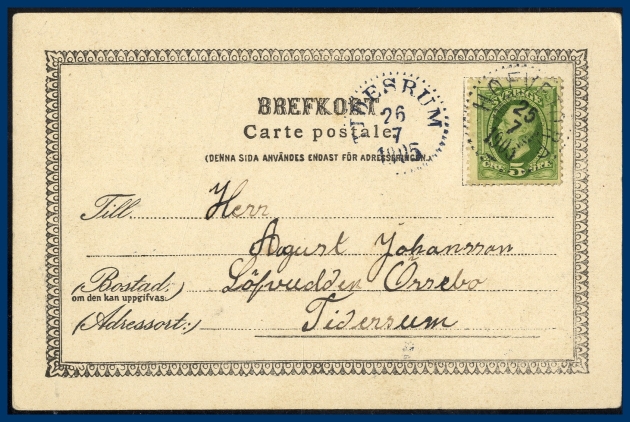 BREFKORT
Carte postale
(DENNA SIDA ANVÄNDES ENDAST FÖR ADRESSERINGEN.)
26
7
1905
25
7
SVERIGE
5
Till Herr
August Johansson
(Bostad:) Löfvudden Orrebo
om den kan uppgifvas:
(Adressort:) Tidersum